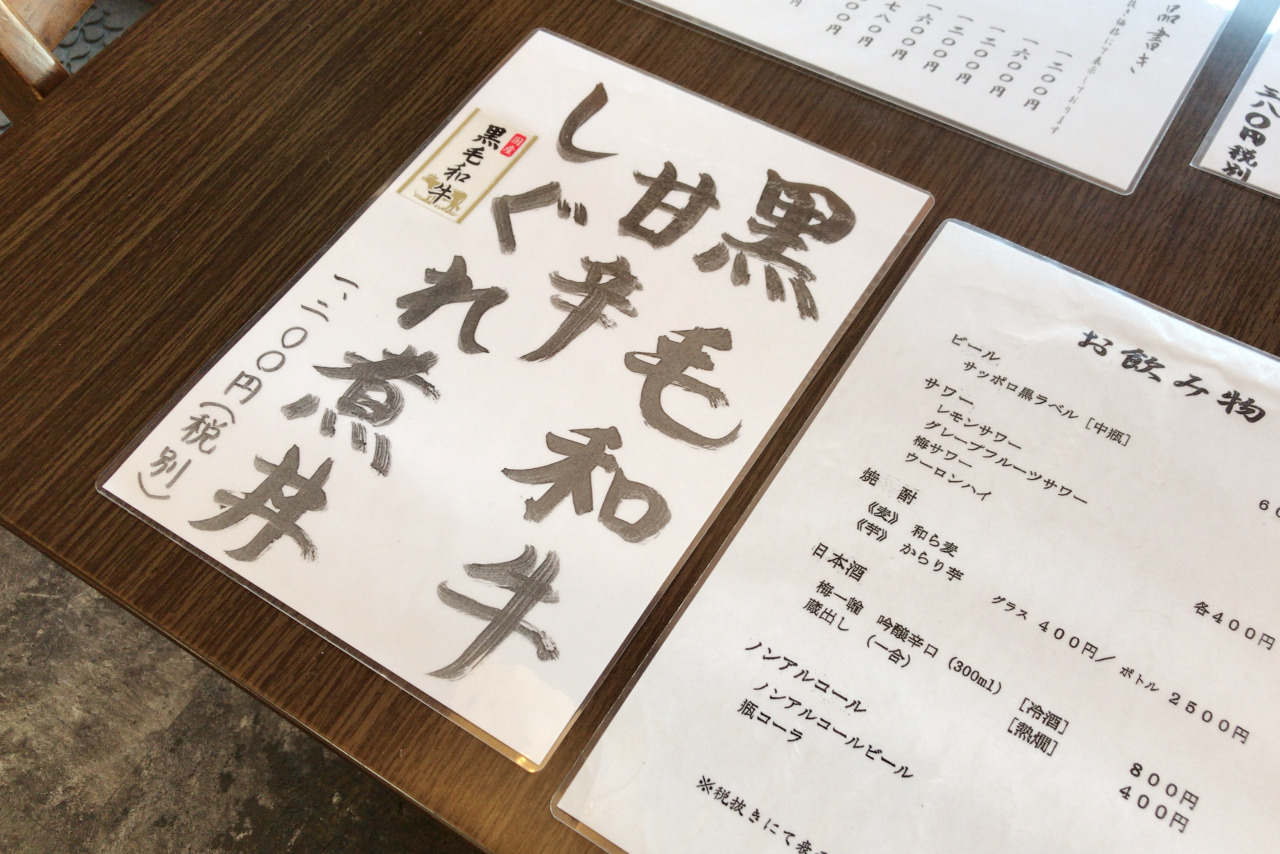 黒毛和牛
甘辛
しぐれ煮丼
国産
黒毛和牛
一、二〇〇円(税別)
お飲み物
ビール
サッポロ黒ラベル [中瓶]
サワー
レモンサワー
グレープフルーツサワー
梅サワー
ウーロンハイ
各400円
焼 酎
《麦》 和ら麦
《芋》 からり芋
グラス 400円/ ボトル 2500円
日本酒
梅一輪 吟醸辛口 (300ml) [冷酒] 800円
蔵出し (一合) [熱燗] 400円
ノンアルコール
ノンアルコールビール
瓶コーラ
※税抜きにて表
品書き
抜き価格にて表示しております
一二〇〇円
一六〇〇円
一二〇〇円
一二〇〇円
一六〇〇円
七八〇円
三八〇円税別